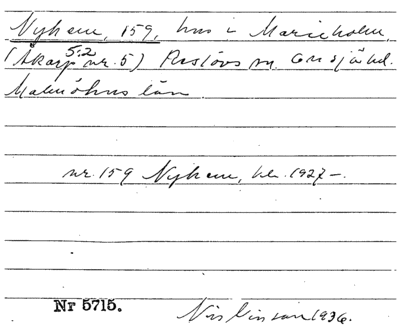 Nyhem, 159, hus i Marieholm,
(Åkarp nr. 5) Reslövs sn. Onsjö hd.
5:2
Malmöhus län
nr. 159 Nyhem, 1927 –.
Nr 5715.
1936.